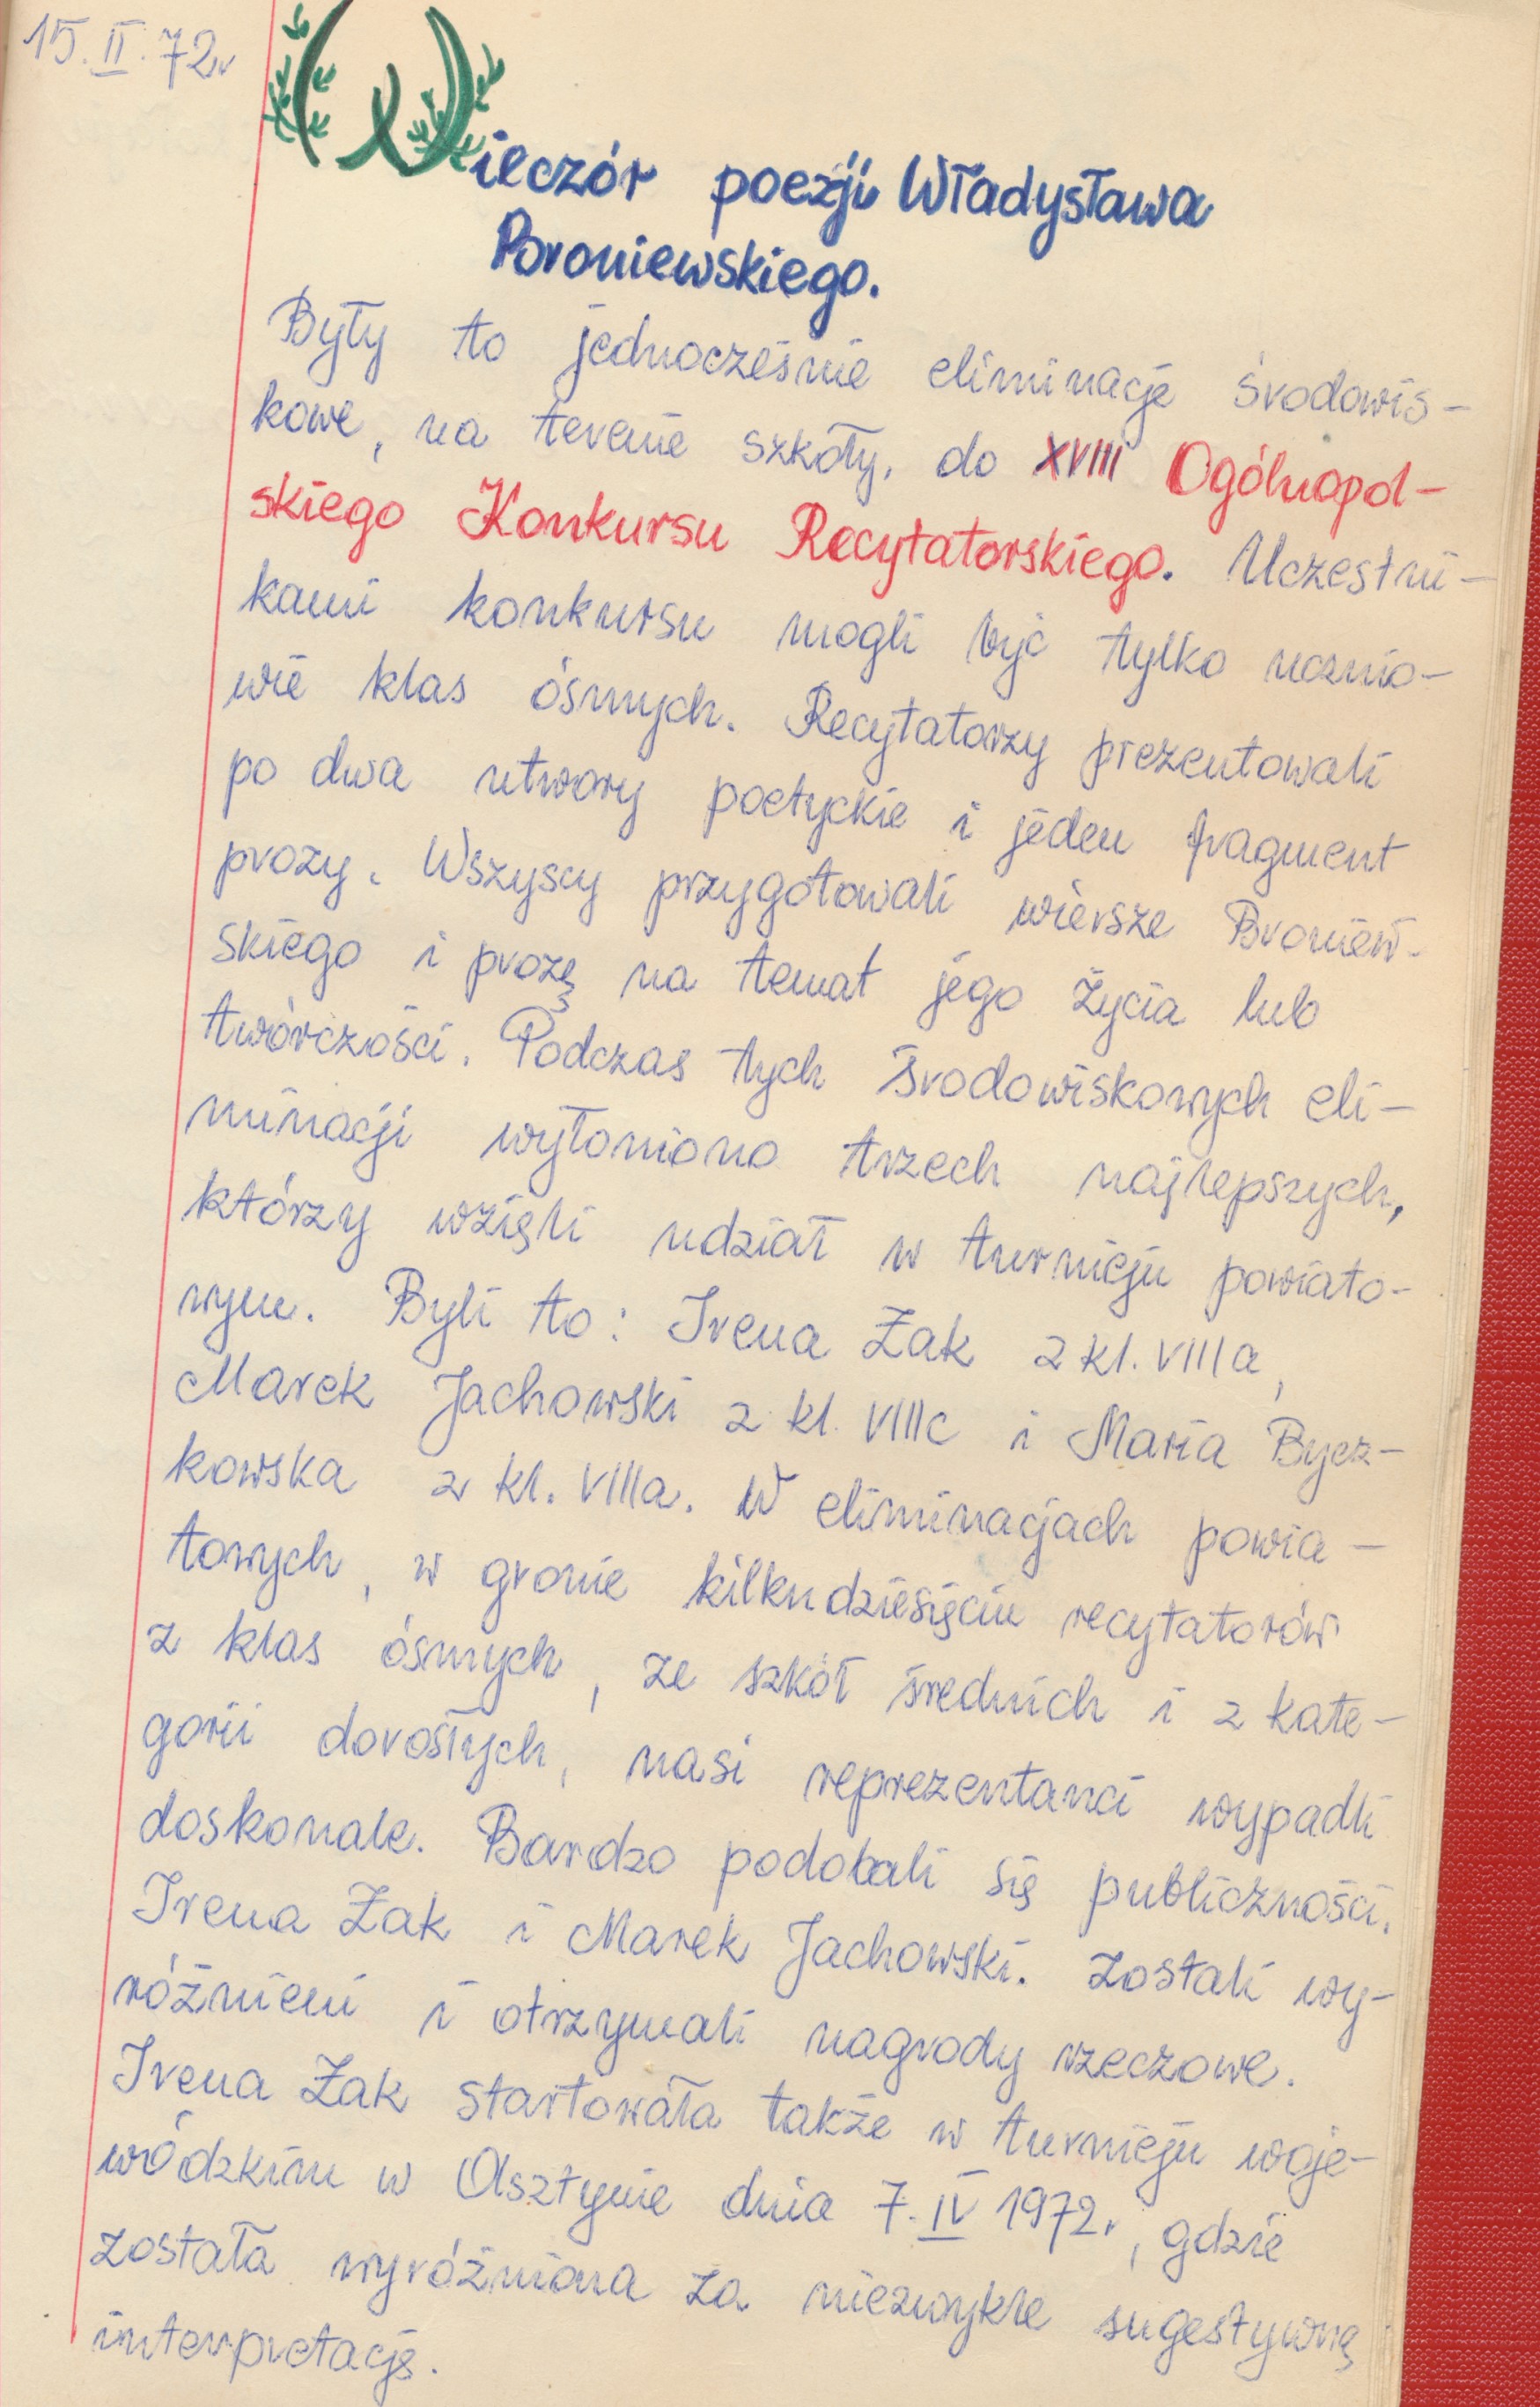 15.II.72r
Wieczór poezji Władysława
Broniewskiego.
Były to jednocześnie eliminacje środowis-
kowe, na terenie szkoły, do XVIII Ogólnopol-
skiego Konkursu Recytatorskiego. Uczestni-
kami konkursu mogli być tylko ucznio-
wie klas ósmych. Recytatorzy prezentowali
po dwa utwory poetyckie i jeden fragment
prozy. Wszyscy przygotowali wiersze Broniew-
skiego i prozę na temat jego życia lub
twórczości. Podczas tych środowiskowych eli-
minacji wyłoniono trzech najlepszych,
którzy wzięli udział w turnieju powiato-
wym. Byli to: Irena Żak z kl. VIIIa,
Marek Jachowski z kl. VIIIc i Maria Bycz-
kowska z kl. VIIIa. W eliminacjach powia-
towych, w gronie kilkudziesięciu recytatorów
z klas ósmych, ze szkół średnich i z kate-
gorii dorosłych, nasi reprezentanci wypadli
doskonale. Bardzo podobali się publiczności.
Irena Żak i Marek Jachowski. Zostali wy-
różnieni i otrzymali nagrody rzeczowe.
Irena Żak startowała także w turnieju woje-
wódzkim w Olsztynie dnia 7.IV 1972r, gdzie
została wyróżniona za niezwykle sugestywną
interpretację.